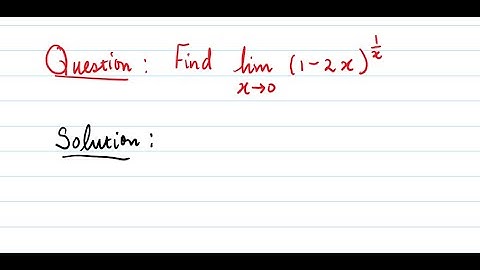 Question : Find lim x→0 (1-2x)^(1/x)
Solution :